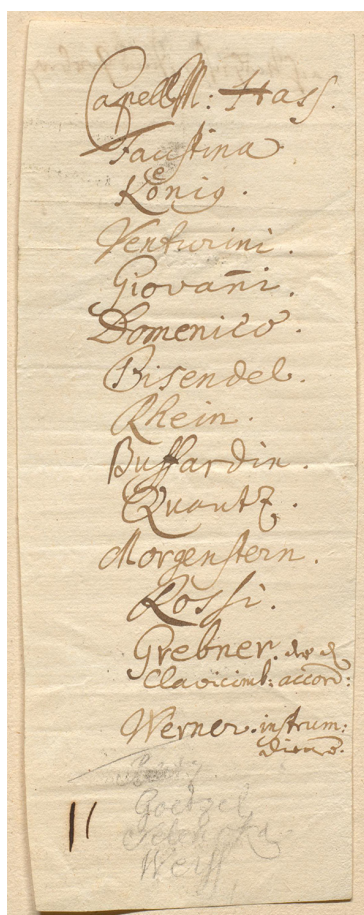 CapellM: Hass.
Faustina
König.
Venturini.
Giovan̄i.
Domenico.
Bisendel.
Rhein.
Buffardin.
Quantz.
Morgenstern.
Rossi.
Grebner. der d
Clavicimb: accord:
Werner. instrum:
diener.
Goetzel
Zelencka
Weiss
11